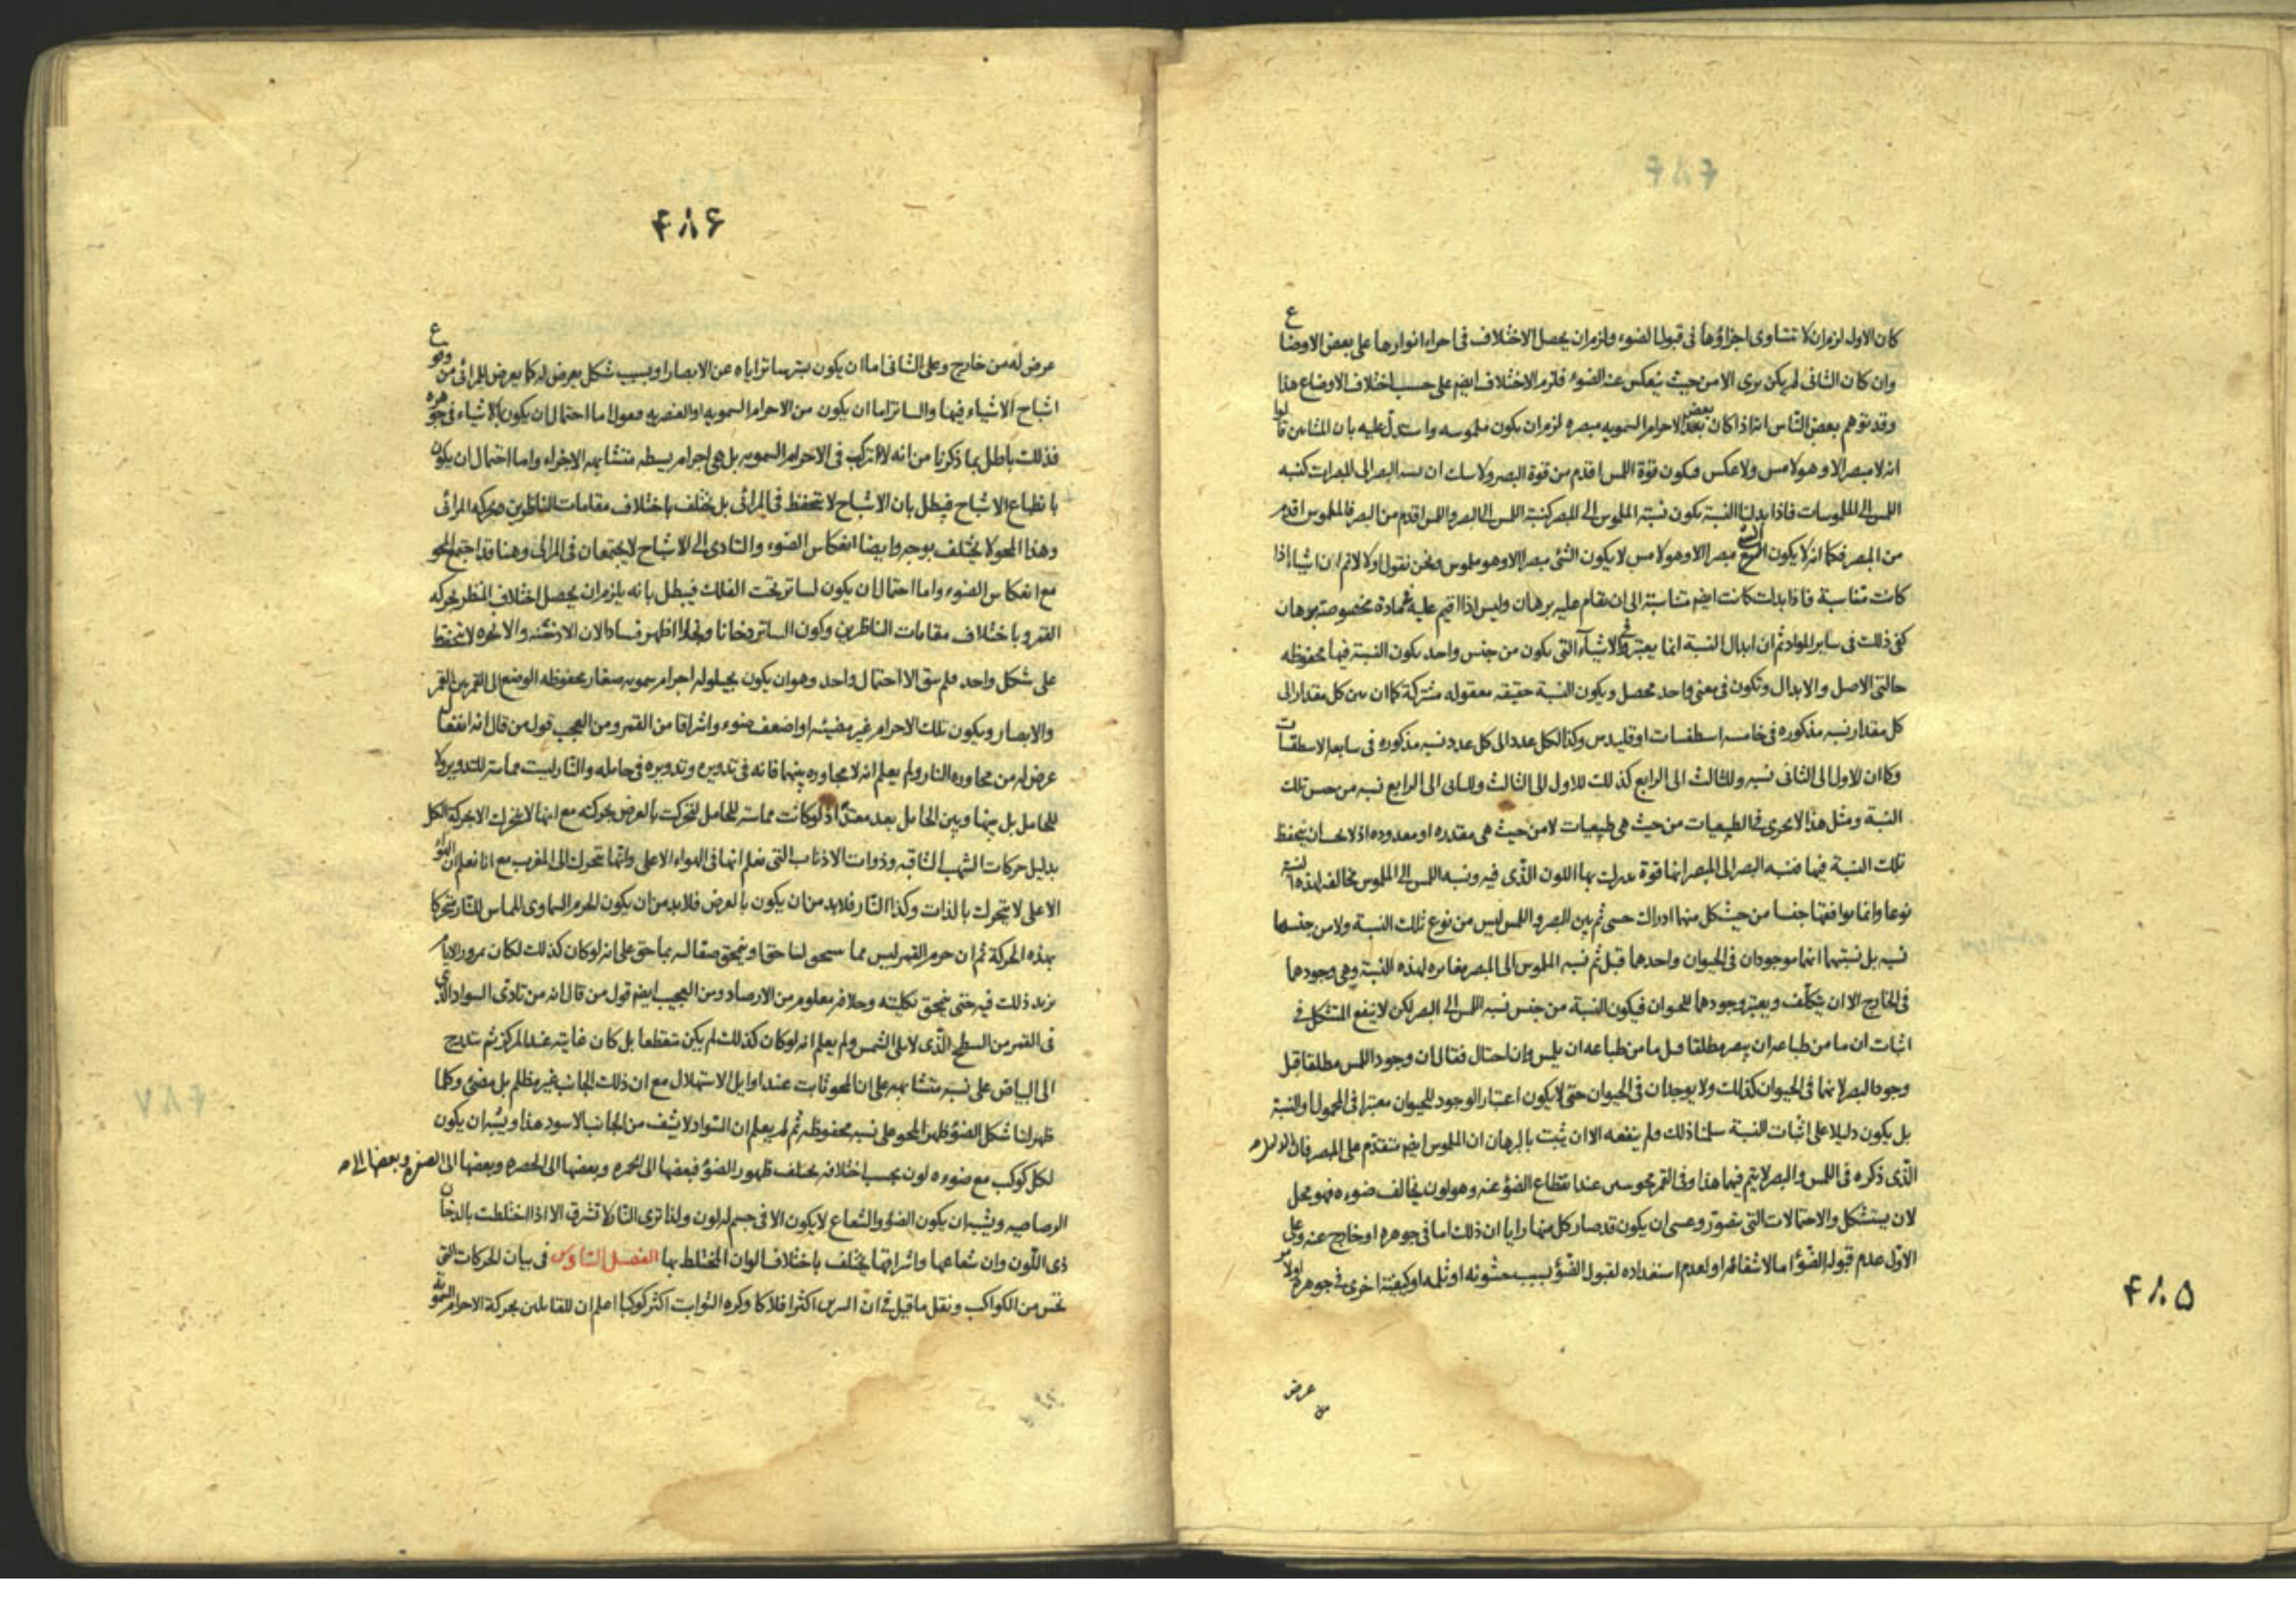 كان الاول لزم ان لا تتساوى اجزاؤها فى قبول الضوء ولزم ان يحصل الاختلاف فى اجراء انوارها على بعض الاوضاع
وان كان الثانى لم يكن يرى الا من حيث ينعكس عنه الضوء فلزم الاختلاف ايضم على حسب اختلاف الاوضاع هذا
وقد توهم بعض الناس انه اذا كان بعض الاحرام السمويه مبصره لزم ان يكون ملموسه واستدل عليه بان المشاءين قالوا
انه لا مبصر الا وهو لامس ولا عكس فيكون قوة اللمس اقدم من قوة البصر ولا سك ان نسبه البصر الى المبصرات كنسبه
اللمس الى الملموسات فاذا بدلنا النسبة يكون نسبة الملموس الى المبصر كنسبة اللمس الى البصر واللمس اقدم من البصر فالملموس اقدم
من المبصر فكما انه لا يكون مبصرا الا وهو لامس لا يكون الشئ مبصرا الا وهو ملموس ونحن نقول اولا لا نم ان اشياء اذا
كانت متناسبة فاذا بدلت كانت ايضم متناسبة الى ان يقام عليه برهان وليس اذا اقيم عليه فى مادة مخصوصة برهان
كفى ذلك فى ساير المواد ثم ان ابدال النسبة انما يعتبر فى الاشياء التى يكون من جنس واحد يكون النسبة فيها محفوظه
حالتى الاصل والابدال وتكون فى معنى واحد محصل ويكون النسبة حقيقه معقوله مشتركة كما ان بين كل مقدار الى
كل مقدار نسبه مذكوره فى خامسه اسطقسات اوقليدس وكذا لكل عدد الى كل عدد نسبه مذكوره فى سابعه الاسطقسات
وكما ان للاول الى الثانى نسبه وللثالث الى الرابع كذلك للاول الى الثالث وللثانى الى الرابع نسبه من جنس تلك
النسبة ومثل هذا لا يجرى فى الطبيعيات من حيث هى طبيعيات لا من حيث هى مقدره او معدوده اذ لا يجب ان يتحفظ
تلك النسبة فيها فنسبه البصر الى المبصر انها قوة يدرك بها اللون الذى فيه ونسبه اللمس الى الملموس مخالفه لهذه النسبة
نوعا وانما يوافقها جنسا من حيث كل منهما ادراك حسى ثم بين البصر واللمس ليس من نوع تلك النسبة ولا من جنسها
نسبه بل نسبتهما انهما موجودان فى الحيوان واحدهما قبل ثم نسبه الملموس الى المبصر مغايره لهذه النسبة وهى وجودهما
فى الخارج الا ان يتكلف ويعتبر وجودهما للحيوان فيكون النسبة من جنس نسبه اللمس الى البصر لكن لا ينفع المتشكل فى
اثبات ان ما من طباعه ان يبصر مطلقا قبل ما من طباعه ان يلمس وان احتال فقال ان وجود اللمس مطلقا قبل
وجود البصر لانهما فى الحيوان كذلك ولا يوجدان فى الحيوان حتى لا يكون اعتبار الوجود للحيوان معتبرا فى المحمول والنسبة
بل يكون دليلا على اثبات النسبة سلمنا ذلك ولم ينفعه الا ان يثبت بالبرهان ان الملموس ايضم متقدم على المبصر فان
الذى ذكره فى اللمس والبصر لا يتم فيهما هذا وفى القمر محو يرى عند انقطاع الضوء عنه وهو لون يخالف ضوءه فهو محل
لان يستشكل والاحتمالات التى تتصور وعسى ان يكون قد صار كل منها رايا ان ذلك اما فى جوهره او خارج عنه وعلى
الاول عدم قبوله الضوء اما لاشفافه او لعدم استعداده لقبول الضوء بسبب خشونه او ثلمه او كيفية اخرى فى جوهره او لامر
عرض
۴۸۵
۴۸۶
عرض له من خارج وعلى الثانى اما ان يكون بستر ساتر اياه عن الابصار او بسبب شكل يعرض له كما يعرض للمرائى من وقوع
اشباح الاشياء فيها والساتر اما ان يكون من الاحرام السمويه او العنصريه فنقول اما احتمال ان يكون لاشياء فى جوهره
فذلك باطل بما ذكرنا من انه لا تركب فى الاجرام السمويه بل هى اجرام بسيطه متشابهه الاجزاء واما احتمال ان يكون
بانطباع الاشباح فيبطل بان الاشباح لا تتحفظ فى المرائى بل تختلف باختلاف مقامات الناظرين وحركه المرائى
وهذا المحو لا يختلف بوجه وايضا انعكاس الضوء والتادى الى الاشباح لا يجتمعان فى المرائى وهنا قد اجتمع المحو
مع انعكاس الضوء واما احتمال ان يكون لساتر تحت الفلك فيبطل بانه يلزم ان يحصل اختلاف المنظر بحركه
القمر وباختلاف مقامات الناظرين وكون الساتر دخانا وبخارا اظهر فسادا لان الادخنه والابخره لا تتحفظ
على شكل واحد فلم يبق الا احتمال واحد وهو ان يكون بحيلوله اجرام سمويه صغار محفوظه الوضع الى القمر بين القمر
والابصار ويكون تلك الاجرام غير مضيئه او اضعف ضوء واشراقا من القمر ومن العجب قول من قال انه انفعا
عرض له من مجاوره النار ولم يعلم انه لا مجاوره بينهما فانه فى تدويره وتدويره فى حامله والنار ليست مماسة للتدوير ولا
للحامل بل بينها وبين الحامل بعد معتد اذ لو كانت مماسة للحامل لتحركت بالعرض بحركته مع انها لا تتحرك الا بحركة الكل
بدليل حركات الشهب الثاقبه وذوات الاذناب التى نعلم انها فى الهواء الاعلى وانها تتحرك الى المغرب مع انا نعلم ان الهواء
الاعلى لا يتحرك بالذات وكذا النار فلابد من ان يكون بالعرض فلابد من ان يكون الجرم السماوى المماس للنار متحركا
بهذه الحركة ثم ان جرم القمر ليس مما ينمحق لنا حقا وينمحق صقاله بما حق على انه لو كان كذلك لكان بمرور الايام
يزيد ذلك فيه حتى ينمحق بكليته وخلافه معلوم من الارصاد ومن العجيب ايضم قول من قال انه من تادى السواد الذى
فى القمر من السطح الذى لا يلى الشمس ولم يعلم انه لو كان كذلك لم يكن متقطعا بل كان غايته عند المركز ثم يتدرج
الى البياض على نسبه متشابهه على ان المحو ثابت عند اوايل الاستهلال مع ان ذلك الجانب غير مظلم بل مضئ وكلما
ظهر لنا شكل الضوء ظهر المحو على نسبه محفوظه ثم لم يعلم ان السواد لا يشف من الجانب الاسود هذا ويشبه ان يكون
لكل كوكب مع ضوءه لون بحسب اختلافه يختلف ظهور الضوء فبعضها الى الحمره وبعضها الى الخضره وبعضها الى الصفره وبعضها الى
الرصاصيه ويشبه ان يكون الضوء والشعاع لا يكون الا فى جسم له لون ولذا ترى النار لا تشرق الا اذا اختلطت بالدخان
ذى اللون وان شعاعها واشراقها يختلف باختلاف الوان المختلط بها الفصل السادس فى بيان الحركات التى
تخص من الكواكب ونقل ما قيل فى ان اكثر افلاكا وكره الثوابت اكثر كوكبا اعلم ان للقائلين بحركة الاجرام السمويه
۴۸۷